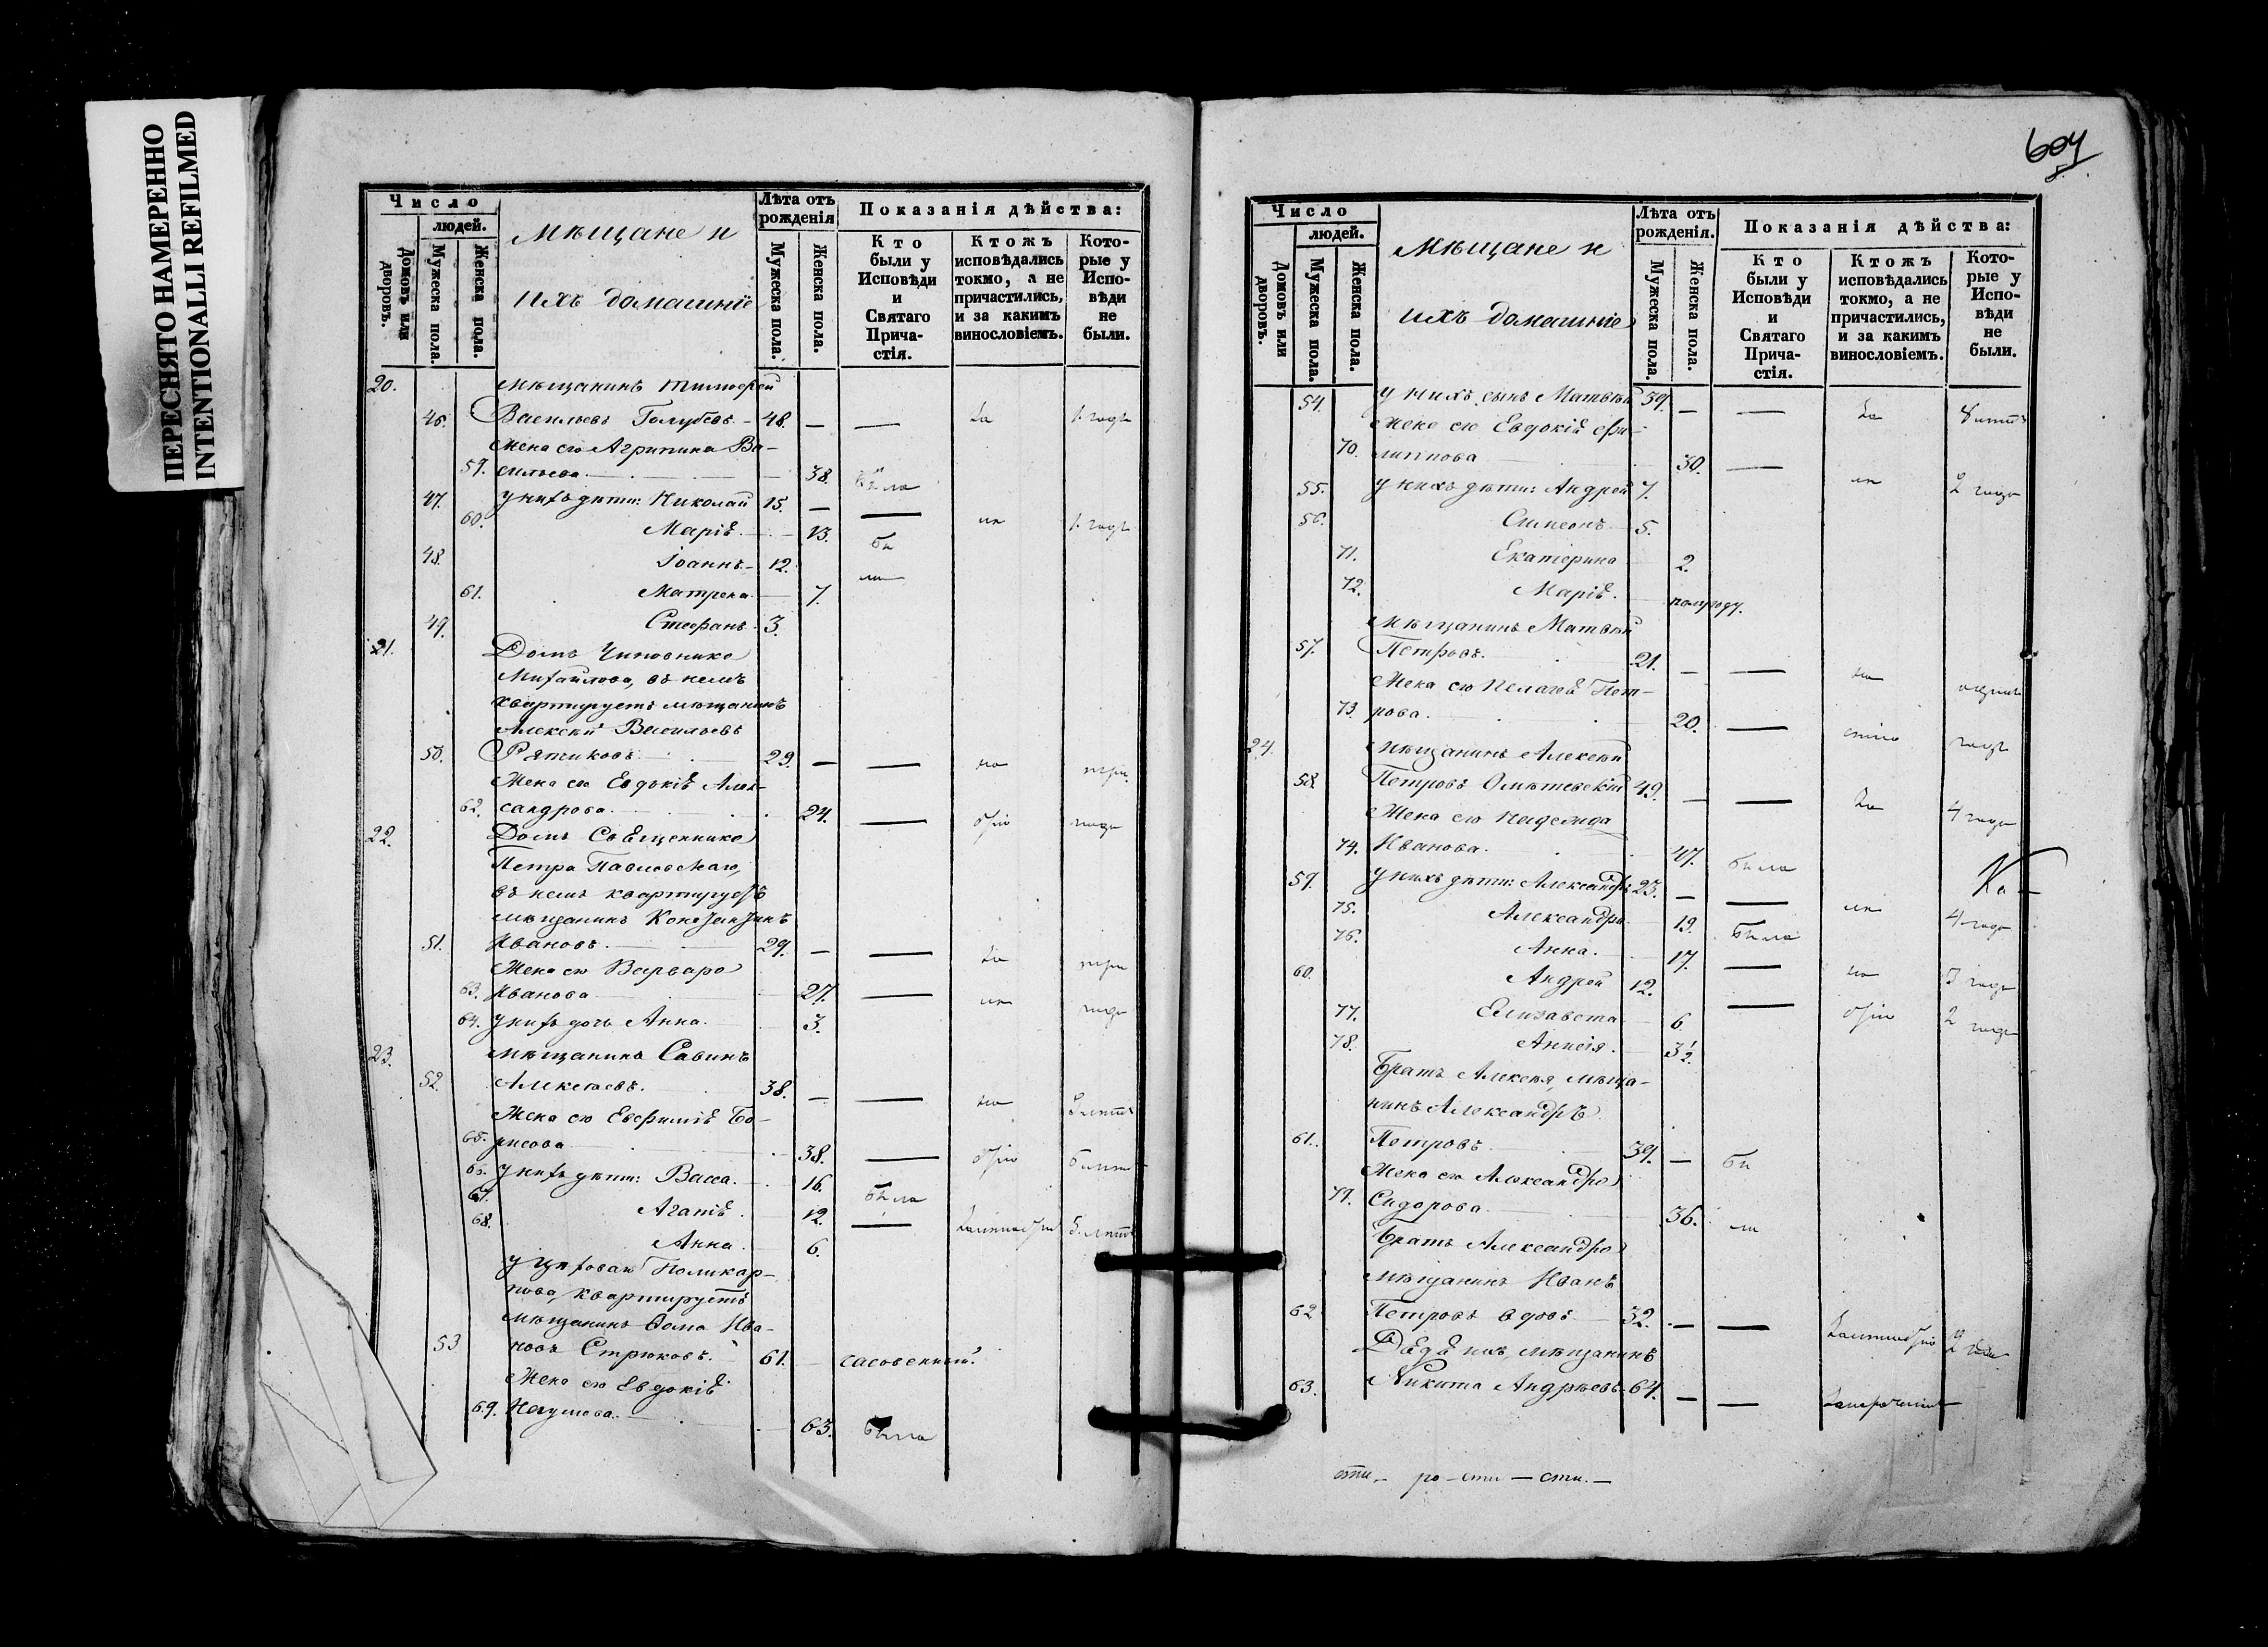 ПЕРЕСНЯТО НАМЕРЕННО
INTENTIONALLI REFILMED
Число
людей.
Домовъ или дворовъ.
Мужеска пола.
Женска пола.
Мѣщане и
ихъ домашніе
Лѣта отъ рожденія
Мужеска пола.
Женска пола.
Показанія дѣйства:
Кто были у Исповѣди и Святаго Прича-стія.
Ктожъ исповѣдались токмо, а не причастились, и за какимъ винословіемъ.
Кото-рые у Испо-вѣди не были.
20. мѣщанинъ Тимоѳей
46. Васильевъ Голубевъ 48. — — за 1. годъ
Жена его Агрипина Ва-
59. сильева 38. была
47. у нихъ дѣти: Николай 15. — — 1. годъ
60. Марія 13. бы
48. Іоаннъ 12. ли
61. Матрена 7.
49. Стефанъ 3.
21. Домъ Чиновника
Михайлова, въ немъ
квартируетъ мѣщанинъ
Алексѣй Васильевъ
50. 29. — — три
Жена его Евдокія Алек-
62. сандрова 24. — года
22. Домъ Священника
Петра Павловскаго,
въ немъ квартируетъ
мѣщанинъ Константинъ
51. Ивановъ 29. — — за три
Жена его Варвара
63. Иванова 27. — года
64. у нихъ дочь Анна 3.
23. мѣщанинъ Савинъ
52. Алексѣевъ 38. — —
Жена его Евфимія Бо-
65. рисова 38. —
66. у нихъ дѣти: Васса 16. была
67. Агапія 12. —
68. Анна 6.
Поликар-
пова, квартируетъ
мѣщанинъ Ѳома Ива-
53 новъ Стрюковъ 61.
Жена его Евдокія
69. 63. была
604
Число
людей.
Домовъ или дворовъ.
Мужеска пола.
Женска пола.
Мѣщане и
ихъ домашніе
Лѣта отъ рожденія.
Мужеска пола.
Женска пола.
Показанія дѣйства:
Кто были у Исповѣди и Святаго Прича-стія.
Ктожъ исповѣдались токмо, а не причастились, и за какимъ винословіемъ.
Кото-рые у Испо-вѣди не были.
54. у нихъ сынъ Матвѣй 39. — — за
Жена его Евдокія Фи-
70. липпова 30. —
55. у нихъ дѣти: Андрей 7. 2 года
56. Симеонъ 5.
71. Екатерина 2.
72. Марія полугоду.
мѣщанинъ Матвѣй
57. Петровъ 21. — —
Жена его Пелагея Пет-
73. рова 20. — годъ
24. мѣщанинъ Алексѣй
58. Петровъ 49. — — за 4 года
Жена его Надежда
74. Иванова 47. была
59. у нихъ дѣти: Александръ 23. — — 4 года
75. Александра 19. была
76. Анна 17. — 3 года
60. Андрей 12. — 2 года
77. Елизавета 6
78. 3 1/2.
Братъ Алексѣя, мѣща-
нинъ Александръ
61. Петровъ 39. — бы
Жена его Александра
79. Сидорова 36. ли
Братъ Александра
мѣщанинъ Иванъ
62 Петровъ вдовъ 32. — — 2 года
Дядя ихъ, мѣщанинъ
63. Никита Андреевъ 64. — —